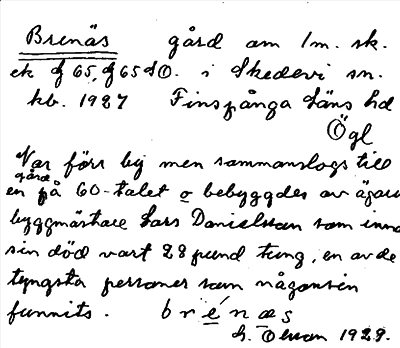 Brenäs gård om 1m. sk.
ek 65, 65 SO. i Skedevi sn.
kb. 1927 Finspånga läns hd
Ögl
Var förr by men sammanslogs till
gård
en på 60-talet o bebyggdes av ägaren
byggmästare Lars Danielsson som inna
sin död vart 28 pund tung, en av de
tyngsta personer som någonsin
funnits. brénæs
H. Olsson 1929.